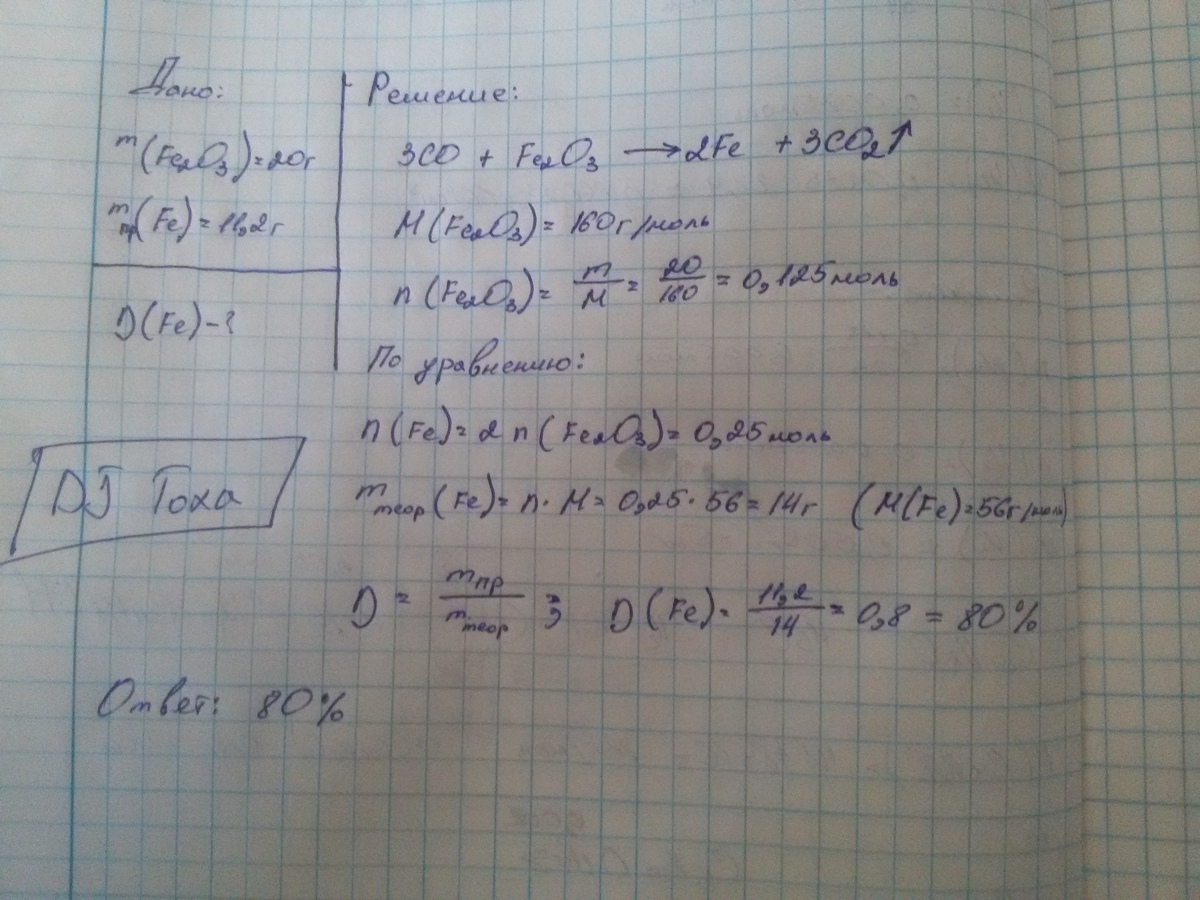 Дано:
m(Fe2O3)=20г
mпр(Fe)=11,2г
D(Fe)-?
Решение:
3CO + Fe2O3 → 2Fe + 3CO2↑
M(Fe2O3)=160г/моль
n(Fe2O3)= m/M = 20/160 = 0,125моль
По уравнению:
n(Fe)=2n(Fe2O3)=0,25моль
mтеор(Fe)=n·M=0,25·56=14г (M(Fe)=56г/моль)
D = mпр/mтеор ; D(Fe)= 11,2/14 = 0,8 = 80%
DJ Toxa
Ответ: 80%